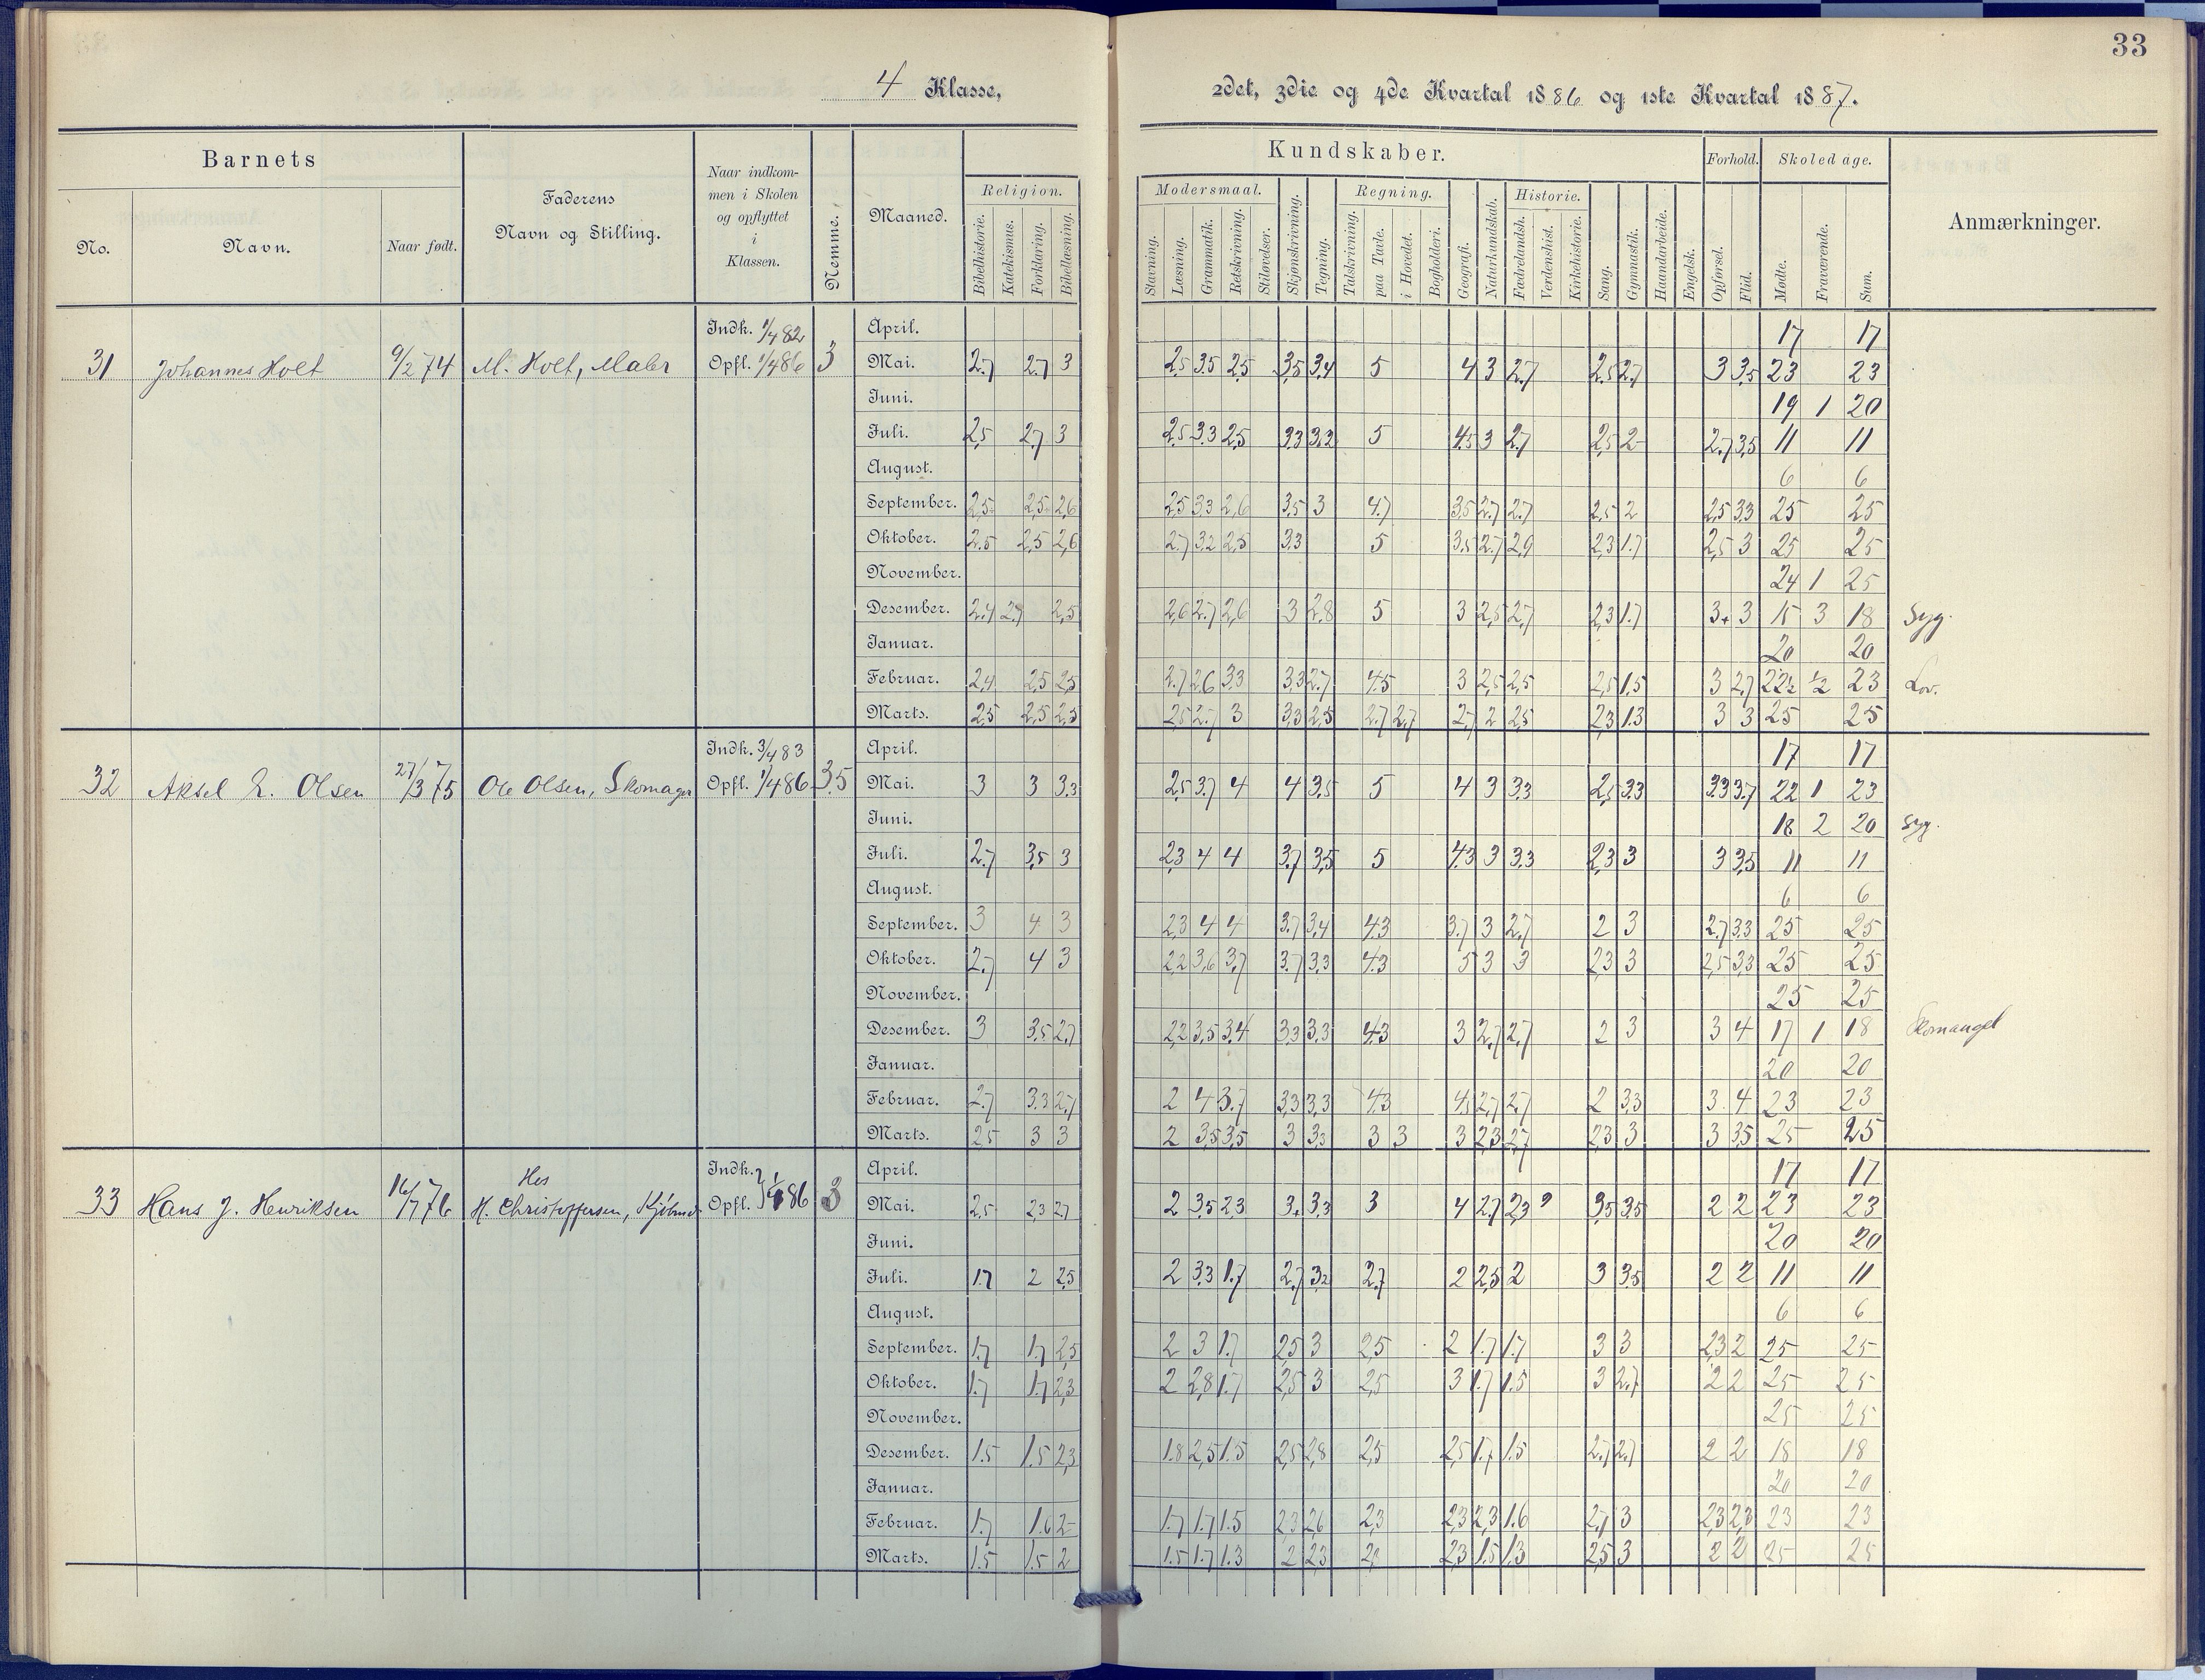 33
4 Klasse, 2det, 3die og 4de Kvartal 1886 og 1ste Kvartal 1887.
Barnets
No. Navn. Naar født.
Faderens Navn og Stilling.
Naar indkommen i Skolen og opflyttet i Klassen.
Nemme.
Maaned.
Kundskaber.
Religion. Bibelhistorie. Katekismus. Forklaring. Bibellæsning.
Modersmaal. Stavning. Læsning. Grammatik. Retskrivning. Stiløvelser.
Skjønskrivning. Tegning.
Regning. Talskrivning. paa Tavle. i Hovedet. Bogholderi.
Geografi. Naturkundskab.
Historie. Fædrelandsh. Verdenshist. Kirkehistorie.
Sang. Gymnastik. Haandarbeide. Engelsk.
Forhold. Opførsel. Flid.
Skoledage. Mødte. Fraværende. Sum.
Anmærkninger.
31 Johannes Holt 9/2 74 M. Holt, Maler Indk. 1/4 82 Opfl. 1/4 86 3
April. 17 17
Mai. 2.7 2.7 3 2.5 3.5 2.5 3.5 3.4 5 4 3 2.7 2.5 2.7 3 3.5 23 23
Juni. 19 1 20
Juli. 2.5 2.7 3 2.5 3.3 2.5 3.3 3.2 5 4.5 3 2.7 2.5 2 2.7 3.5 11 11
August. 6 6
September. 2.5 2.5 2.6 2.5 3.3 2.6 3.5 3 4.7 3.5 2.7 2.7 2.5 2 2.5 3.3 25 25
Oktober. 2.5 2.5 2.6 2.7 3.2 2.5 3.3 5 3.5 2.7 2.9 2.3 1.7 2.5 3 25 25
November. 24 1 25
Desember. 2.4 2.7 2.5 2.6 2.7 2.6 3 2.8 5 3 2.5 2.7 2.3 1.7 3+ 3 15 3 18 Syg.
Januar. 20 20
Februar. 2.4 2.5 2.5 2.7 2.6 3.3 3.3 2.7 4.5 3 2.5 2.5 2.5 1.5 3 2.7 22½ ½ 23 Lov.
Marts. 2.5 2.5 2.5 2.5 2.7 3 3.3 2.5 2.7 2.7 2.7 2 2.5 2.3 1.3 3 3 25 25
32 Aksel E. Olsen 27/3 75 Ole Olsen, Skomager Indk. 3/4 83 Opfl. 1/4 86 3.5
April. 17 17
Mai. 3 3 3.3 2.5 3.7 4 4 3.5 5 4 3 3.3 2.5 3.3 3.3 3.7 22 1 23
Juni. 18 2 20 Syg.
Juli. 2.7 3.5 3 2.3 4 4 3.7 3.5 5 4.3 3 3.3 2.3 3 3 3.5 11 11
August. 6 6
September. 3 4 3 2.3 4 4 3.7 3.4 4.3 3.7 3 2.7 2 3 2.7 3.3 25 25
Oktober. 2.7 4 3 2.2 3.6 3.7 3.7 3.3 4.3 5 3 3 2.3 3 2.5 3.3 25 25
November. 25 25
Desember. 3 3.5 2.7 2.2 3.5 3.4 3.3 3.3 4.3 3 2.7 2.7 2 3 3 4 17 1 18 Skomangel
Januar. 20 20
Februar. 2.7 3.3 2.7 2 4 3.7 3.3 3.3 4.3 4.5 2.7 2.7 2 3.3 3 4 23 23
Marts. 2.5 3 3 2 3.5 3.5 3 3.3 3 3 3 2.3 2.7 2.3 3 3 3.5 25 25
33 Hans J. Henriksen 16/7 76 Hes H. Christoffersen, Indk. Opfl. } 1/4 86 3
April. 17 17
Mai. 2.5 2.3 2.7 2 3.5 2.3 3+ 3.3 3 4 2.7 2.3 ? 3.5 3.5 2 2 23 23
Juni. 20 20
Juli. 1.7 2 2.5 2 3.3 1.7 2.7 3.2 2.7 2 2.5 2 3 3.5 2 2 11 11
August. 6 6
September. 1.7 1.7 2.5 2 3 1.7 2.5 3 2.5 2 1.7 1.7 3 3 2.3 2 25 25
Oktober. 1.7 1.7 2.3 2 2.8 1.7 2.5 3 2.5 3 1.7 1.5 3 2.7 2 2 25 25
November. 25 25
Desember. 1.5 1.5 2.3 1.8 2.5 1.5 2.5 2.8 2.5 2.5 1.7 1.5 2.7 2.7 2 2 18 18
Januar. 20 20
Februar. 1.7 1.6 2 1.7 1.7 1.5 2.3 2.6 2.3 2.3 2.3 1.6 2.7 3 2.3 2.3 23 23
Marts. 1.5 1.5 2 1.5 1.7 1.3 2 2.3 2.3 1.5 1.3 2.5 3 2 2 25 25